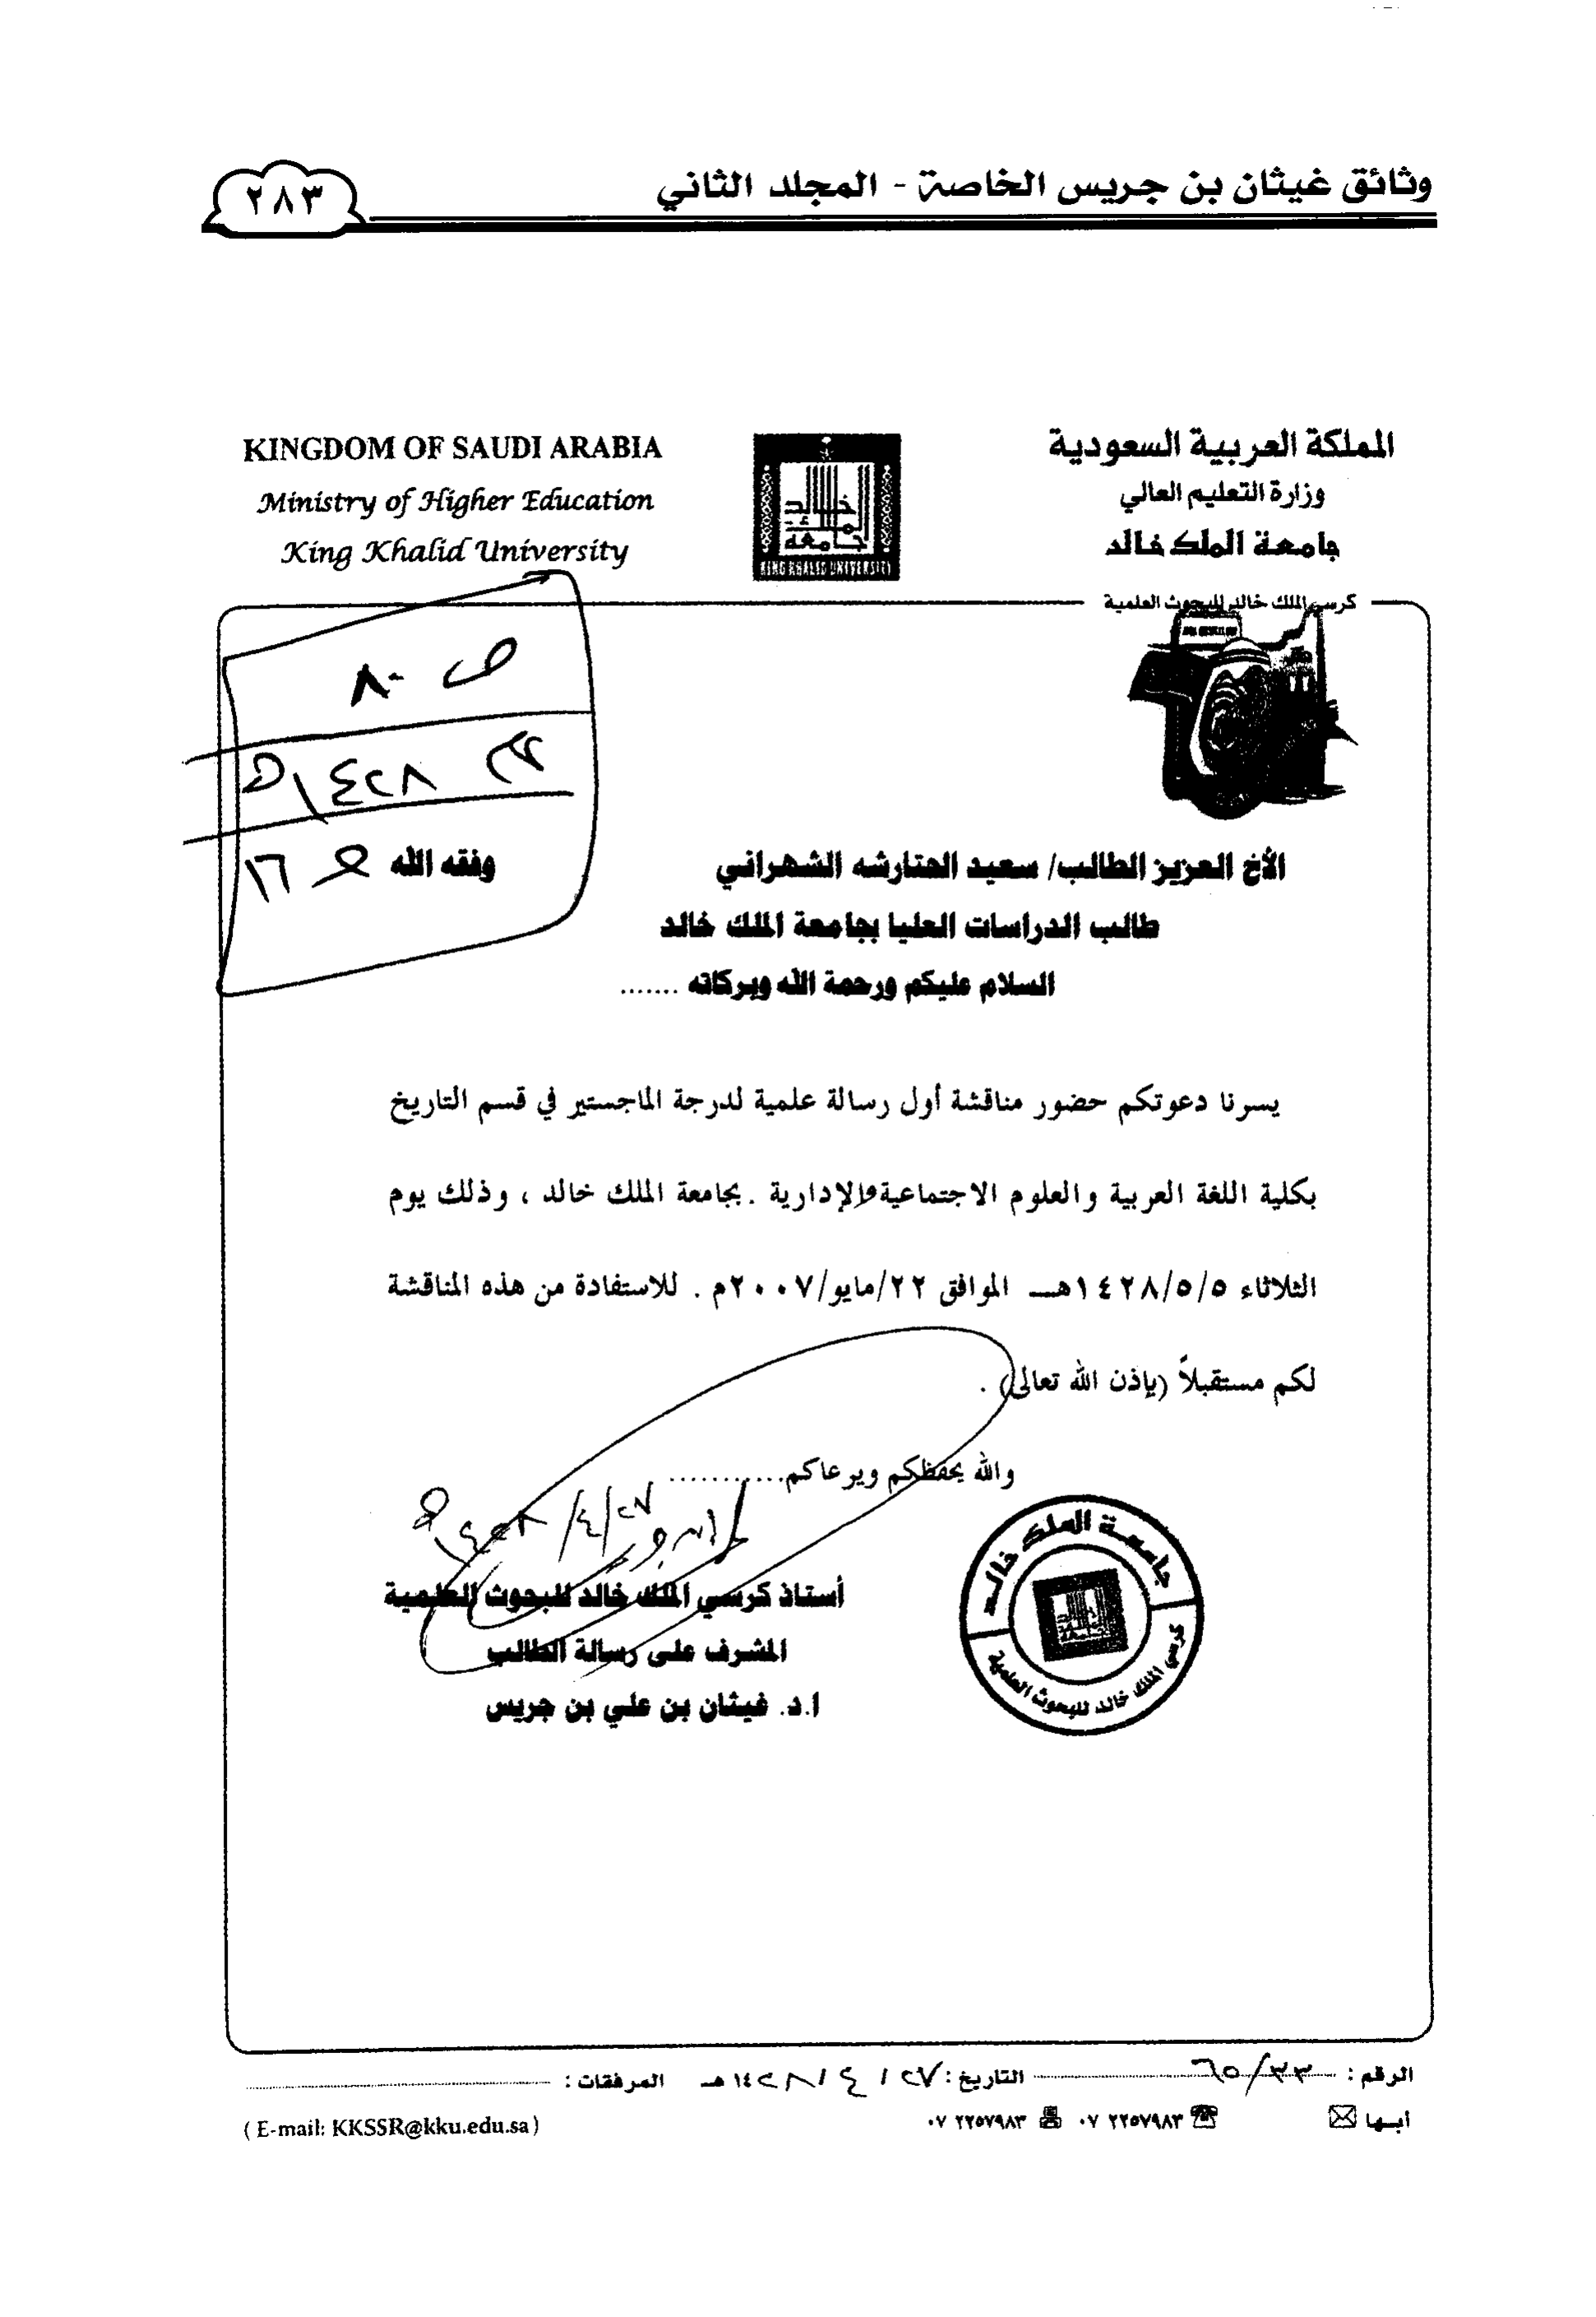 وثائق غيثان بن جريس الخاصة - المجلد الثاني
٢٨٣
المملكة العربية السعودية
وزارة التعليم العالي
جامعة الملك خالد
كرسي الملك خالد للبحوث العلمية
KINGDOM OF SAUDI ARABIA
Ministry of Higher Education
King Khalid University
جامعة الملك خالد
KING KHALID UNIVERSITY
ص ٨٠
١٤٢٨هـ
١٦
الأخ العزيز الطالب/ سعيد الهتارشه الشهراني وفقه الله
طالب الدراسات العليا بجامعة الملك خالد
السلام عليكم ورحمة الله وبركاته .......
يسرنا دعوتكم حضور مناقشة أول رسالة علمية لدرجة الماجستير في قسم التاريخ
بكلية اللغة العربية والعلوم الاجتماعية والإدارية . بجامعة الملك خالد ، وذلك يوم
الثلاثاء ١٤٢٨/٥/٥هـ الموافق ٢٢/مايو/٢٠٠٧م . للاستفادة من هذه المناقشة
لكم مستقبلاً (بإذن الله تعالى) .
والله يحفظكم ويرعاكم...........
٢٧/٤/١٤٢٨هـ
أستاذ كرسي الملك خالد للبحوث العلمية
المشرف على رسالة الطالب
ا.د. غيثان بن علي بن جريس
جامعة الملك خالد
كرسي الملك خالد للبحوث العلمية
الرقم : ٦٥/٣٣ التاريخ : ٢٧ / ٤ / ١٤٢٨ هـ المرفقات :
أبها ٠٧ ٢٢٥٧٩٨٣ ٠٧ ٢٢٥٧٩٨٣
( E-mail: KKSSR@kku.edu.sa )